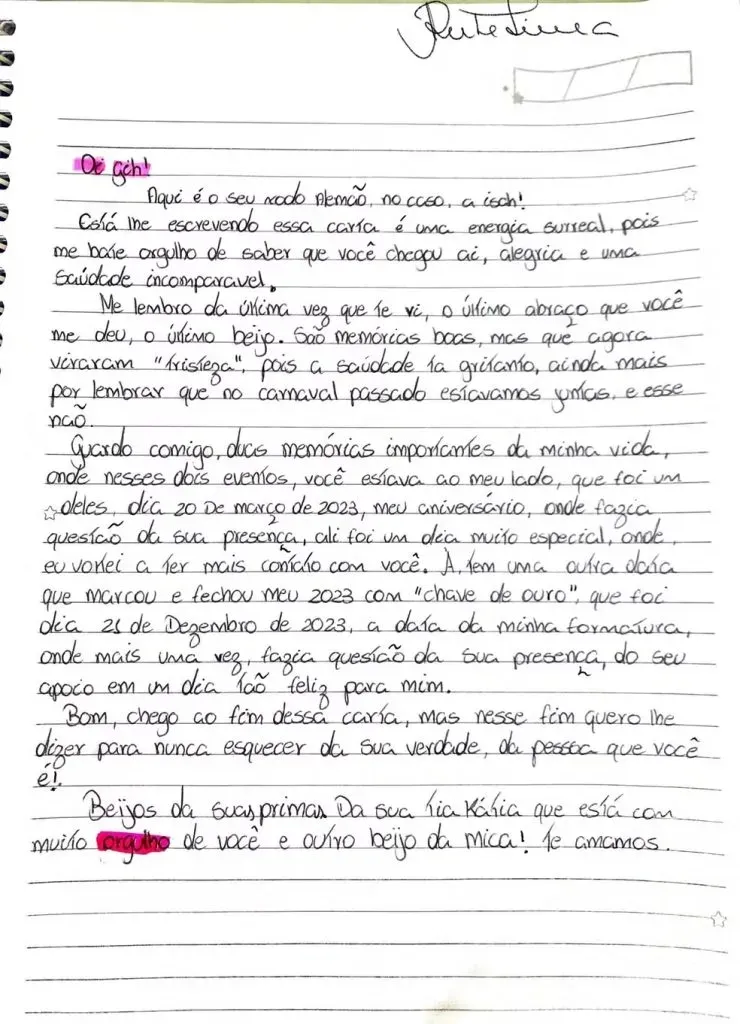 Rute Lima
Oi geh!
Aqui é o seu nodo Alemão, no caso, a isah!
Está lhe escrevendo essa carta é uma energia surreal, pois
me bate orgulho de saber que você chegou ai, alegria e uma
saúdade incomparavel.
Me lembro da última vez que te vi, o último abraço que você
me deu, o último beijo. São memórias boas, mas que agora
viraram "tristeza", pois a saúdade ta gritanto, ainda mais
por lembrar que no carnaval passado estavamos juntas, e esse
não.
Guardo comigo, duas memórias importantes da minha vida,
onde nesses dois eventos, você estava ao meu lado, que foi um
deles, dia 20 De março de 2023, meu aniversário, onde fazia
questão da sua presença, ali foi um dia muito especial, onde,
eu voltei a ter mais contato com você. A, tem uma outra data
que marcou e fechou meu 2023 com "chave de ouro", que foi
dia 21 de Dezembro de 2023, a data da minha formatura,
onde mais uma vez, fazia questão da sua presença, do seu
apoio em um dia tão feliz para mim.
Bom, chego ao fim dessa carta, mas nesse fim quero lhe
dizer para nunca esquecer da sua verdade, da pessoa que você
é!
Beijos da suas primas, Da sua tia Kátia que está com
muito orgulho de você e outro beijo da mica! Te amamos.